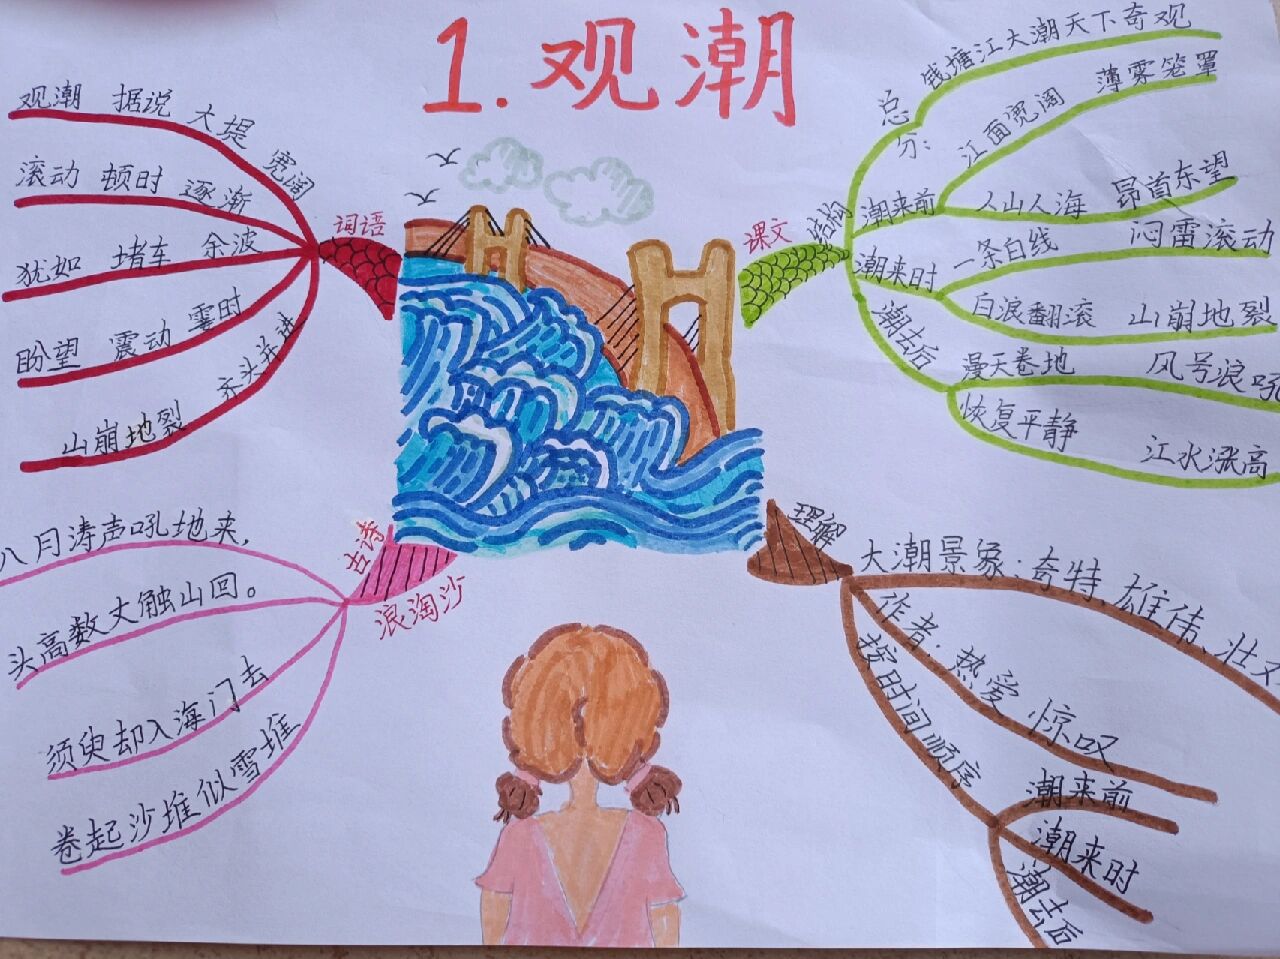 1.观潮
词语
观潮 据说 大堤 宽阔
滚动 顿时 逐渐
犹如 堵车 余波
盼望 震动 霎时
山崩地裂 齐头并进
古诗
浪淘沙
八月涛声吼地来,
头高数丈触山回。
须臾却入海门去
卷起沙堆似雪堆
课文
结构
总
钱塘江大潮天下奇观
分:
潮来前
江面宽阔 薄雾笼罩
人山人海 昂首东望
潮来时
一条白线 闷雷滚动
白浪翻滚 山崩地裂
潮去后
漫天卷地 风号浪吼
恢复平静 江水涨高
理解
大潮景象:奇特、雄伟、壮
作者.热爱 惊叹
按时间顺序
潮来前
潮来时
潮去后